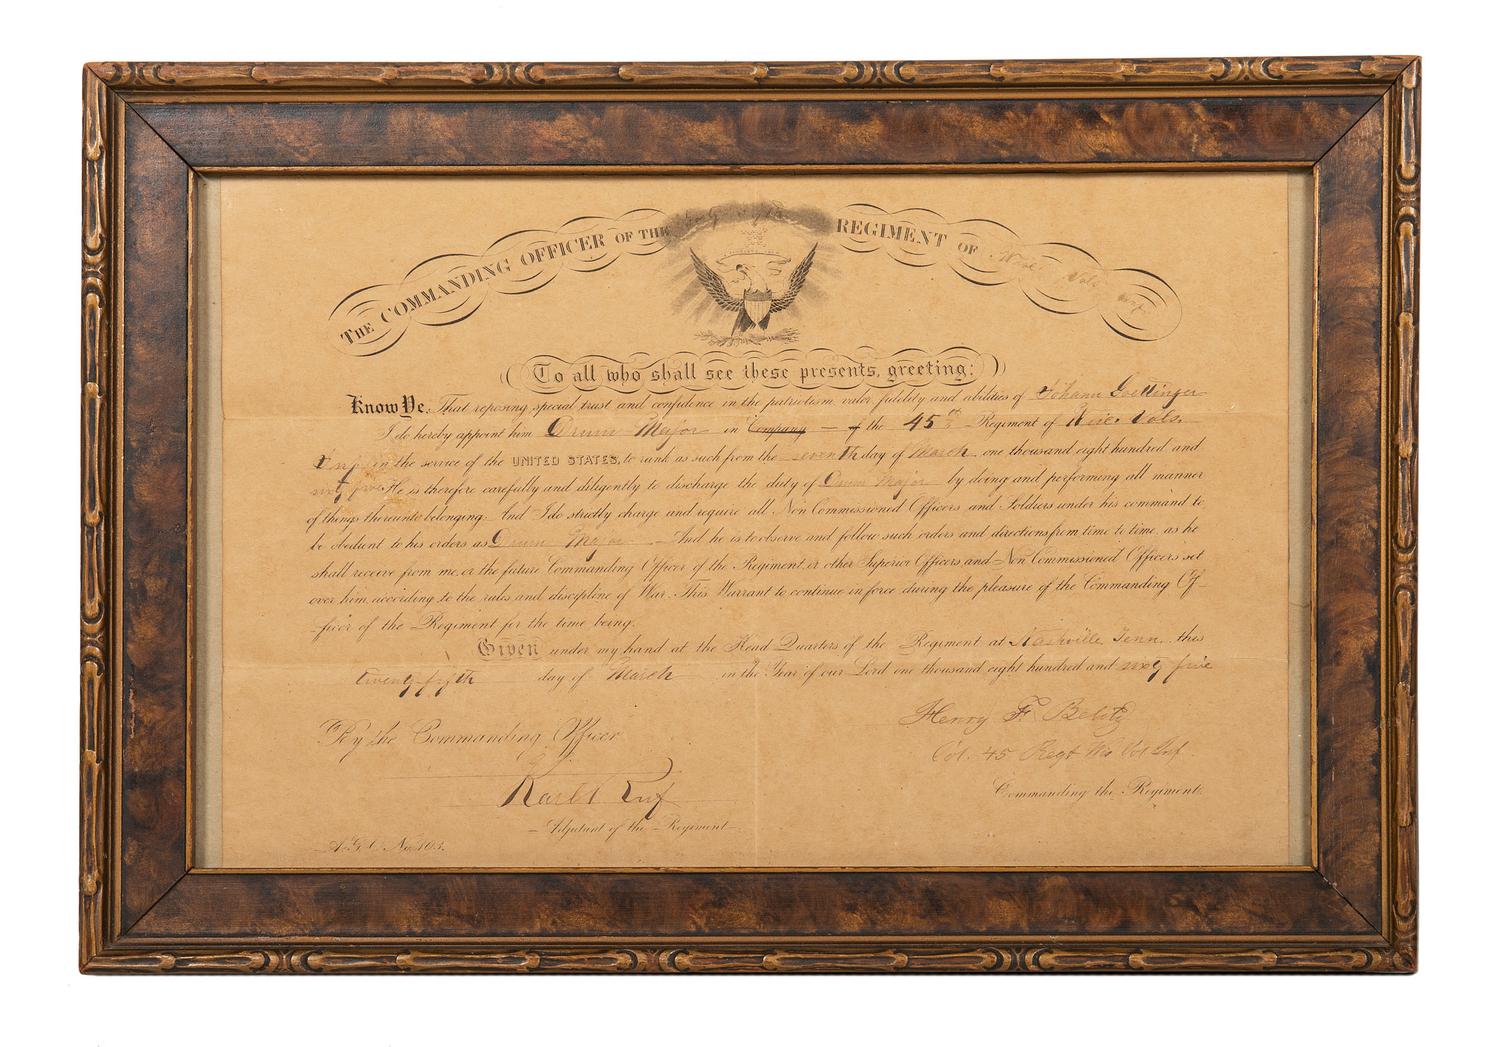 THE COMMANDING OFFICER OF THE REGIMENT OF Vols
To all who shall see these presents, greeting:
Know Ye, That reposing special trust and confidence in the patriotism, valor, fidelity and abilities of Johann Goettinger
I do hereby appoint him Drum Major in Company — of the 45th Regiment of Wis. Vols.
in the service of the UNITED STATES, to rank as such from the seventh day of March one thousand eight hundred and
sixty five He is therefore carefully and diligently to discharge the duty of Drum Major by doing and performing all manner
of things thereunto belonging. And I do strictly charge and require all Non Commissioned Officers and Soldiers under his command to
be obedient to his orders as Drum Major — And he is to observe and follow such orders and directions from time to time, as he
shall receive from me, or the future Commanding Officer of the Regiment, or other Superior Officers and Non Commissioned Officers set
over him, according to the rules and discipline of War. This Warrant to continue in force during the pleasure of the Commanding Of-
ficer of the Regiment for the time being.
Given under my hand at the Head Quarters of the Regiment at Nashville Tenn. this
twenty fifth day of March in the Year of our Lord one thousand eight hundred and sixty five
Henry F. Belitz
By the Commanding Officer
Col. 45 Regt Wis Vol Inf.
Commanding the Regiment.
Karl Ruf
Adjutant of the Regiment
A.G.O. No. 103.